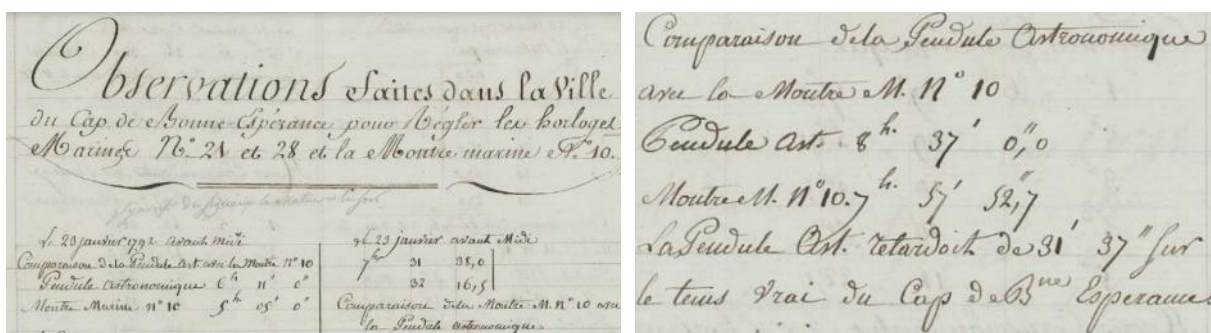 Observations Faites dans la Ville
du Cap de Bonne-Espérance pour Régler les horloges
Marines N.º 21 et 28 et la Montre marine N.º 10.
Le 23 janvier 1792 avant midi
Comparaison de la Pendule Art. avec la Montre N.º 10
Pendule Astronomique 6h 11' 0"
Montre Marine n.º 10 5h 05' 0"
le 23 janvier avant Midi
7h 31 38,0
32 16,5
Comparaison dela Montre M. n.º 10 avec
la Pendule astronomique.
Comparaison dela Pendule Astronomique
avec la Montre M. N.º 10
Pendule Ast. 8h. 37' 0",0
Montre M. N.º 10. 7h. 57' 52",7
La Pendule Ast. retardoit de 31' 37" sur
le tems Vrai du Cap de Bne Esperance.